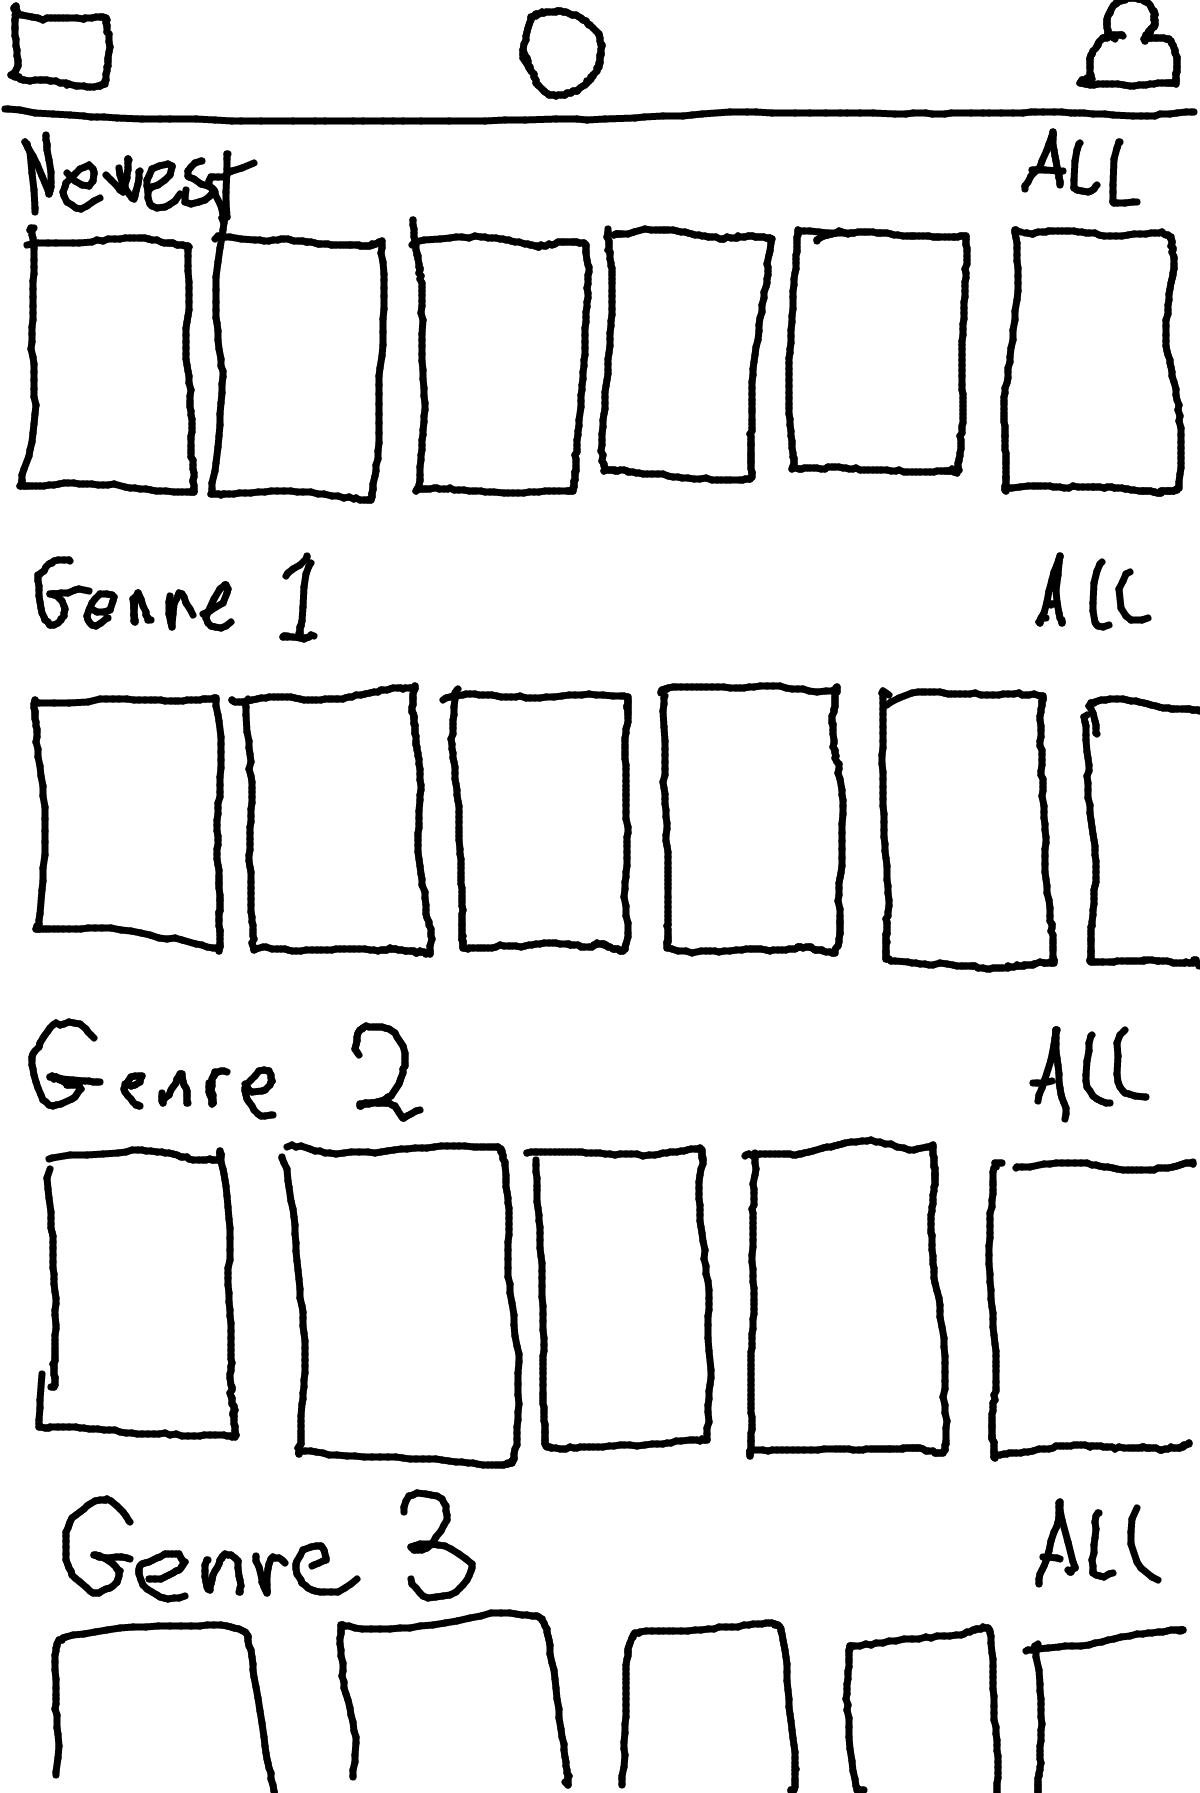 Newest ALL
Genre 1 ALL
Genre 2 ALL
Genre 3 ALL